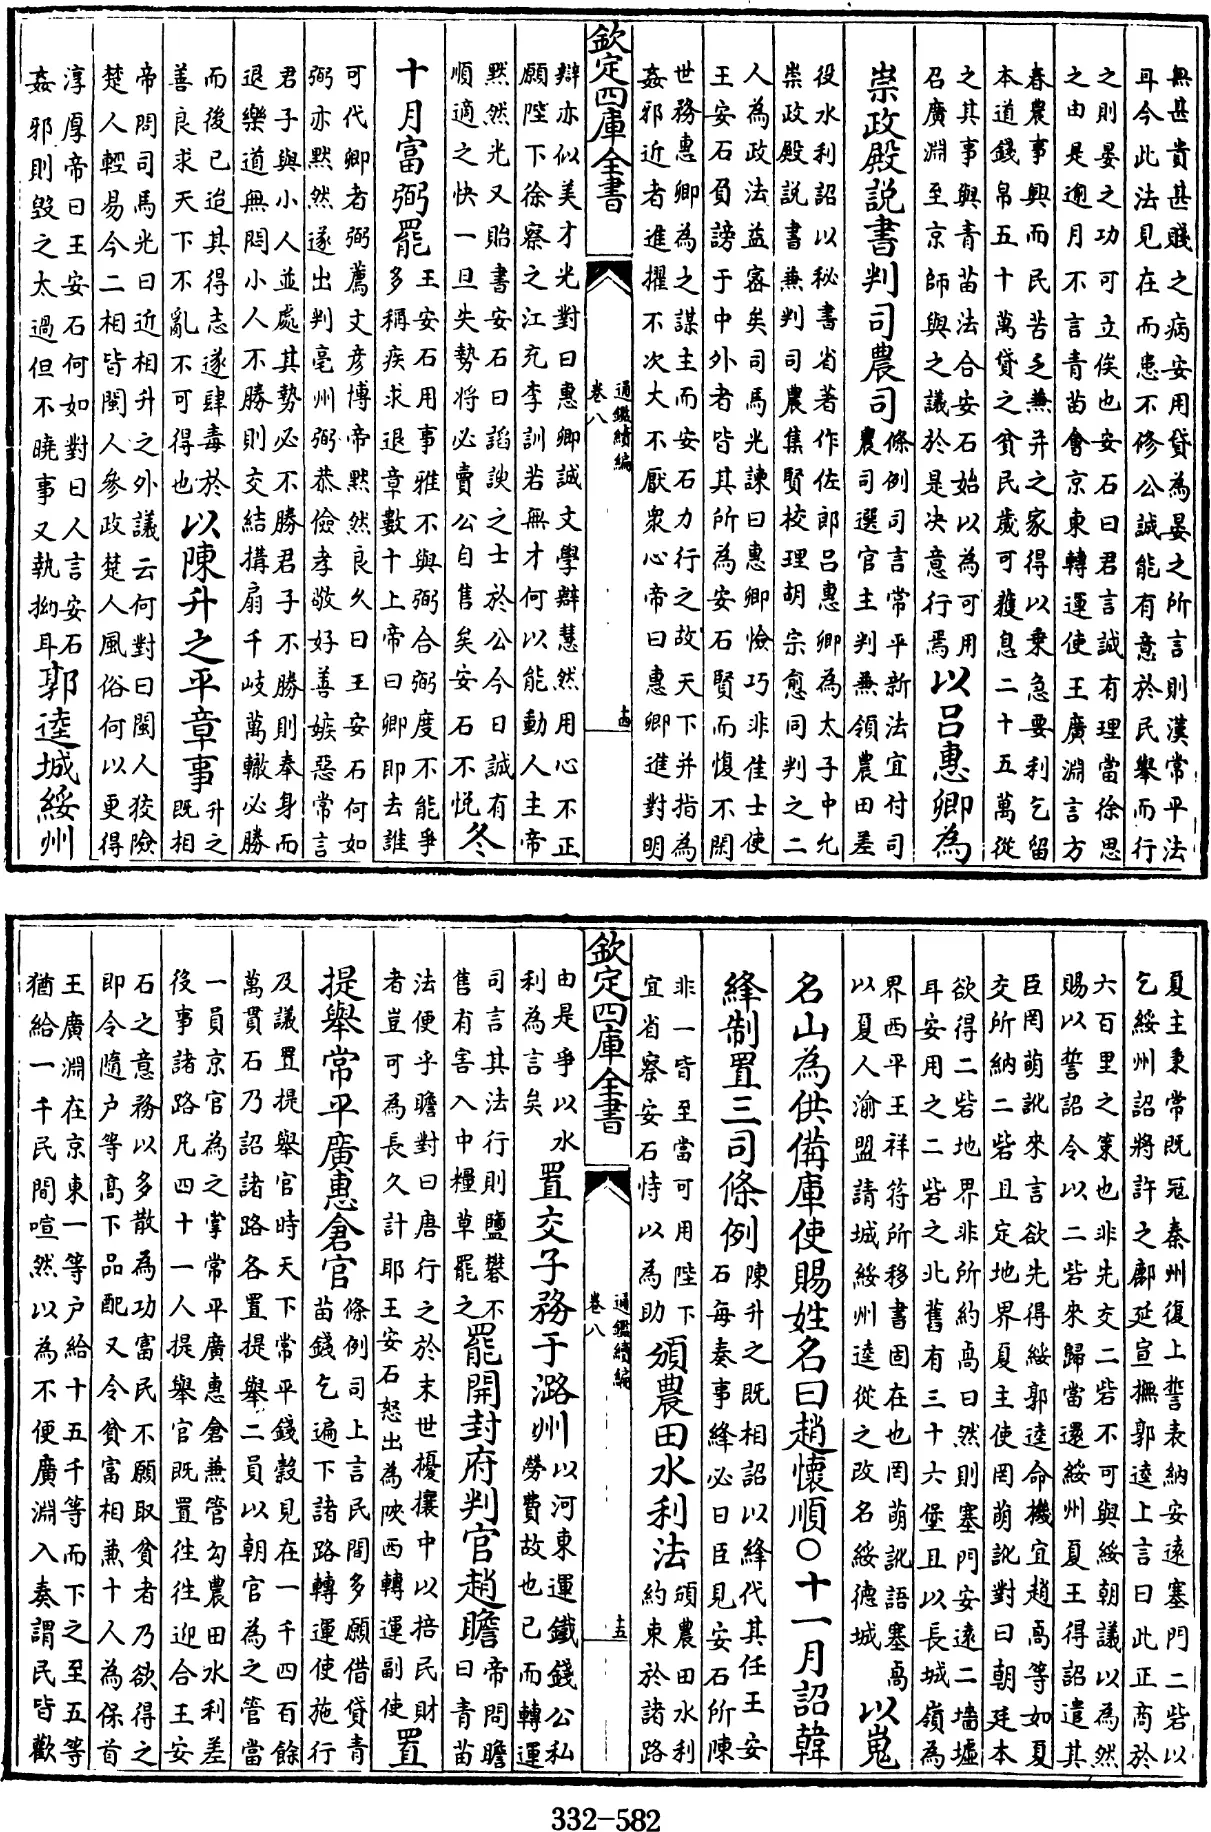 無甚貴甚賤之病安用貸為晏之所言則漢常平法
耳今此法見在而患不修公誠能有意於民舉而行
之則晏之功可立俟也安石曰君言誠有理當徐思
之由是逾月不言青苗會京東轉運使王廣淵言方
春農事興而民苦乏兼并之家得以乗急要利乞留
本道錢帛五十萬貸之貧民歲可穫息二十五萬從
之其事與青苗法合安石始以為可用
召廣淵至京師與之議於是决意行焉
以呂惠卿為
崇政殿説書判司農司
條例司言常平新法宜付司
農司選官主判兼領農田差
役水利詔以秘書省著作佐郎吕惠卿為太子中允
崇政殿説書兼判司農集賢校理胡宗愈同判之二
人為政法益宻矣司馬光諫曰惠卿憸巧非佳士使
王安石負謗于中外者皆其所為安石賢而愎不閑
世務惠卿為之謀主而安石力行之故天下并指為
姦邪近者進擢不次大不厭衆心帝曰惠卿進對明
欽定四庫全書
通鑑續編
卷八
十四
辯亦似美才光對曰惠卿誠文學辯慧然用心不正
願陛下徐察之江充李訓若無才何以能動人主帝
黙然光又貽書安石曰諂諛之士於公今日誠有
順適之快一旦失勢將必賣公自售矣安石不悦
冬
十月富弼罷
王安石用事雅不與弼合弼度不能爭
多稱疾求退章數十上帝曰卿即去誰
可代卿者弼薦文彦博帝黙然良久曰王安石何如
弼亦黙然遂出判亳州弼恭儉孝敬好善嫉惡常言
君子與小人並處其勢必不勝君子不勝則奉身而
退樂道無悶小人不勝則交結搆扇千岐萬轍必勝
而後已迨其得志遂肆毒於
善良求天下不亂不可得也
以陳升之平章事
升之
既相
帝問司馬光曰近相升之外議云何對曰閩人狡險
楚人輕易今二相皆閩人參政楚人風俗何以更得
淳厚帝曰王安石何如對曰人言安石
姦邪則毁之太過但不曉事又執拗耳
郭逵城綏州
夏主秉常既冦秦州復上誓表納安逺塞門二砦以
乞綏州詔將許之鄜延宣撫郭逵上言曰此正商於
六百里之策也非先交二砦不可與綏朝議以為然
賜以誓詔令以二砦來歸當還綏州夏王得詔遣其
臣罔萌訛來言欲先得綏郭逵命機宜趙卨等如夏
交所納二砦且定地界夏主使罔萌訛對曰朝廷本
欲得二砦地界非所約卨曰然則塞門安逺二墻墟
耳安用之二砦之北舊有三十六堡且以長城嶺為
界西平王祥符所移書固在也罔萌訛語塞卨
以夏人渝盟請城綏州逵從之改名綏德城
以嵬
名山為供備庫使賜姓名曰趙懷順○十一月詔韓
絳制置三司條例
陳升之既相詔以絳代其任王安
石每奏事絳必曰臣見安石所陳
非一皆至當可用陛下
宜省察安石恃以為助
頒農田水利法
頒農田水利
約束於諸路
欽定四庫全書
通鑑續編
卷八
十五
由是爭以水
利為言矣
置交子務于潞州
以河東運鐵錢公私
勞費故也已而轉運
司言其法行則鹽礬不
售有害入中糧草罷之
罷開封府判官趙瞻
帝問瞻
曰青苗
法便乎瞻對曰唐行之於末世擾攘中以掊民財
者豈可為長久計耶王安石怒出為陜西轉運副使
置
提舉常平廣惠倉官
條例司上言民間多願借貸青
苗錢乞遍下諸路轉運使施行
及議置提舉官時天下常平錢穀見在一千四百餘
萬貫石乃詔諸路各置提舉二員以朝官為之管當
一員京官為之掌常平廣惠倉兼管勾農田水利差
役事諸路凡四十一人提舉官既置往往迎合王安
石之意務以多散為功富民不願取貧者乃欲得之
即令隨户等高下品配又令貧富相兼十人為保首
王廣淵在京東一等户給十五千等而下之至五等
猶給一千民間喧然以為不便廣淵入奏謂民皆歡
332-582